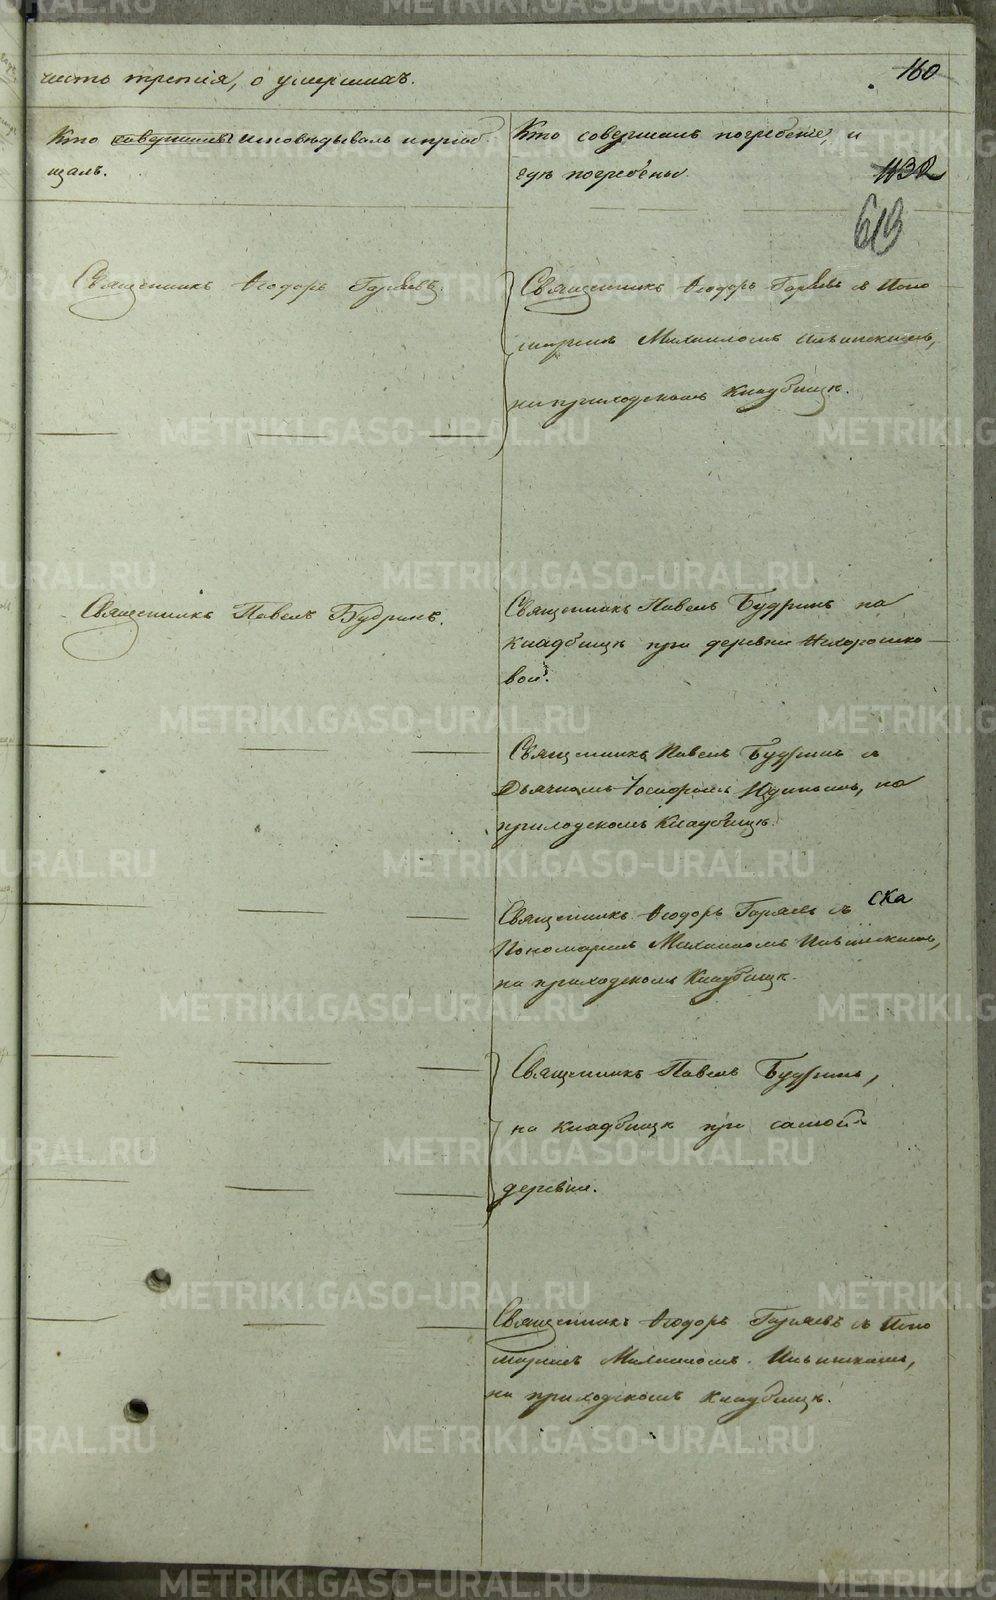 часть третія, о умершихъ.
160
Кто совершалъ исповѣдывалъ и пріоб
щалъ.
Кто совершалъ погребеніе, и
гдѣ погребены.
1132
613
Священникъ Ѳеодоръ Горяевъ.
Священникъ Ѳеодоръ Горяевъ съ Поно
маремъ Михаиломъ Ильинскимъ,
на приходскомъ кладбищѣ.
Священникъ Павелъ Будринъ.
Священникъ Павелъ Будринъ на
кладбищѣ при деревни Нехорошко
вой.
Священникъ Павелъ Будринъ съ
Дьячкомъ Іосифомъ Юдинымъ, на
приходскомъ кладбищѣ.
Священникъ Ѳеодоръ Горяевъ съ ска
Пономаремъ Михаиломъ Ильинскимъ,
на приходскомъ кладбищѣ.
Священникъ Павелъ Будринъ,
на кладбищѣ при самой
деревни.
Священникъ Ѳеодоръ Горяевъ съ Поно
маремъ Михаиломъ Ильинскимъ,
на приходскомъ кладбищѣ.
METRIKI.GASO-URAL.RU